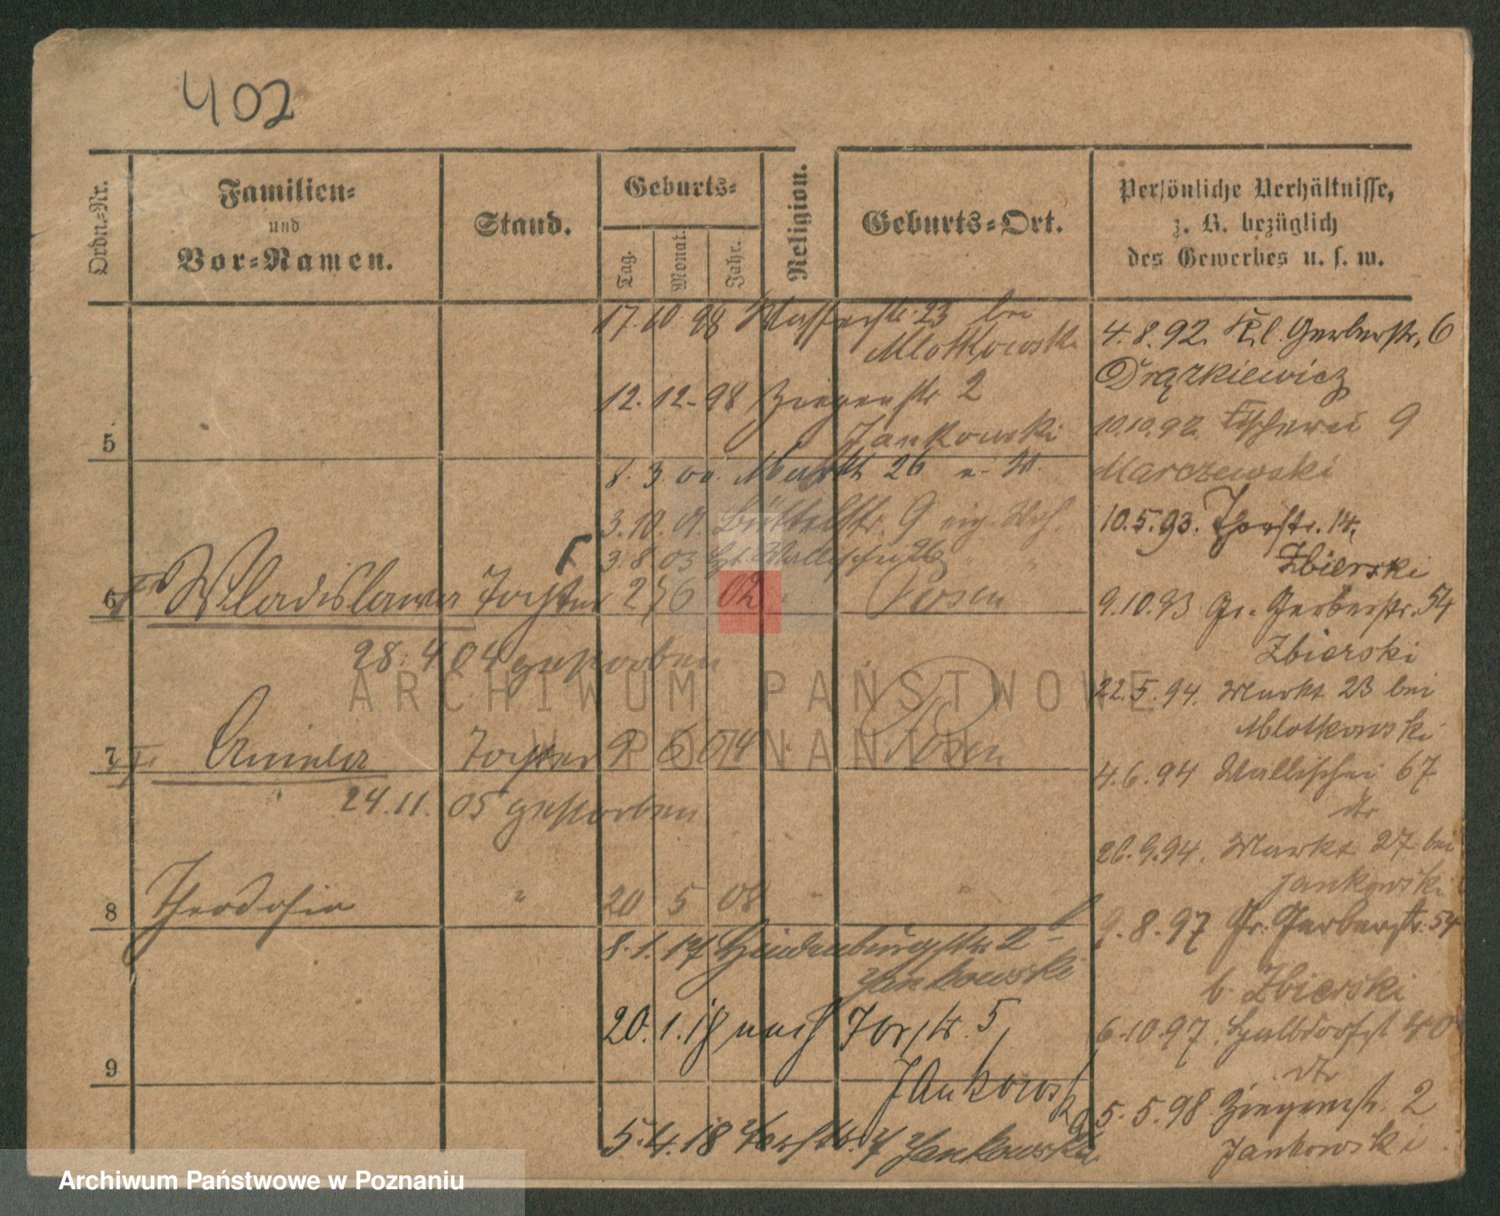 402
Ordn.-Nr.
Familien-
und
Vor-Namen.
Stand.
Geburts-
Tag.
Monat.
Jahr.
Religion.
Geburts-Ort.
Persönliche Verhältnisse,
z. B. bezüglich
des Gewerbes u. s. w.
17. 10 98 Wasserstr. 23 bei
Mlotkowski
12. 12. 98 Ziegenstr. 2
Jankowski
5
8. 3. 00. Markt 26
3. 10. 01. Büttelstr. 9
3. 8. 03 Wallischei 26
6 Wladislawa Tochter 2 6 02 Posen
28. 4 04 gestorben
7 Aniela Tochter 9 6 04 Posen
24. 11. 05 gestorben
8 Theodosia " 20 5 08 " "
8. 1. 17 Hindenburgstr. 2
Jankowski
20. 1. 18 nach Torstr. 5,
9
Jankowski
5. 4. 18 Jankowski
4. 8. 92. Kl. Gerberstr. 6
Drążkiewicz
10. 10. 92. Fischerei 9
Marczewski
10. 5. 93. Thorstr. 14,
Zbierski
9. 10. 93 Gr. Gerberstr. 54
Zbierski
22. 5. 94. Markt 23 bei
Mlotkowski
4. 6. 94 Wallischei 67
dto
26. 9. 94. Markt 27 bei
Jankowski
9. 8. 97 Gr. Gerberstr. 54
b. Zbierski
6. 10. 97. Halbdorfst
dto
5. 5. 98 Ziegenstr. 2
Jankowski
ARCHIWUM PAŃSTWOWE
W POZNANIU
Archiwum Państwowe w Poznaniu